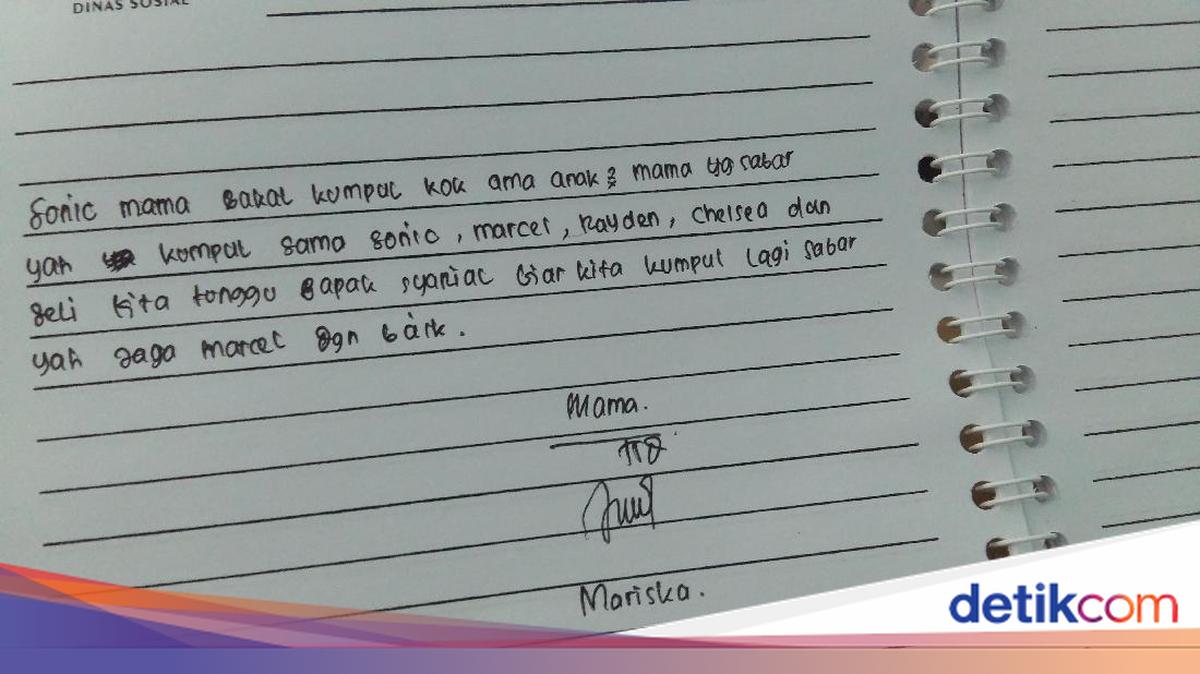 DINAS SOSIAL
Sonic mama bakal kumpul kok ama anak2 mama yg sabar
yah kumpul sama sonic, marcel, Rayden, Chelsea dan
seli kita tunggu bapak syaniac biar kita kumpul lagi sabar
yah jaga marcel dgn baik.
Mama.
TTD
Mariska.
detikcom